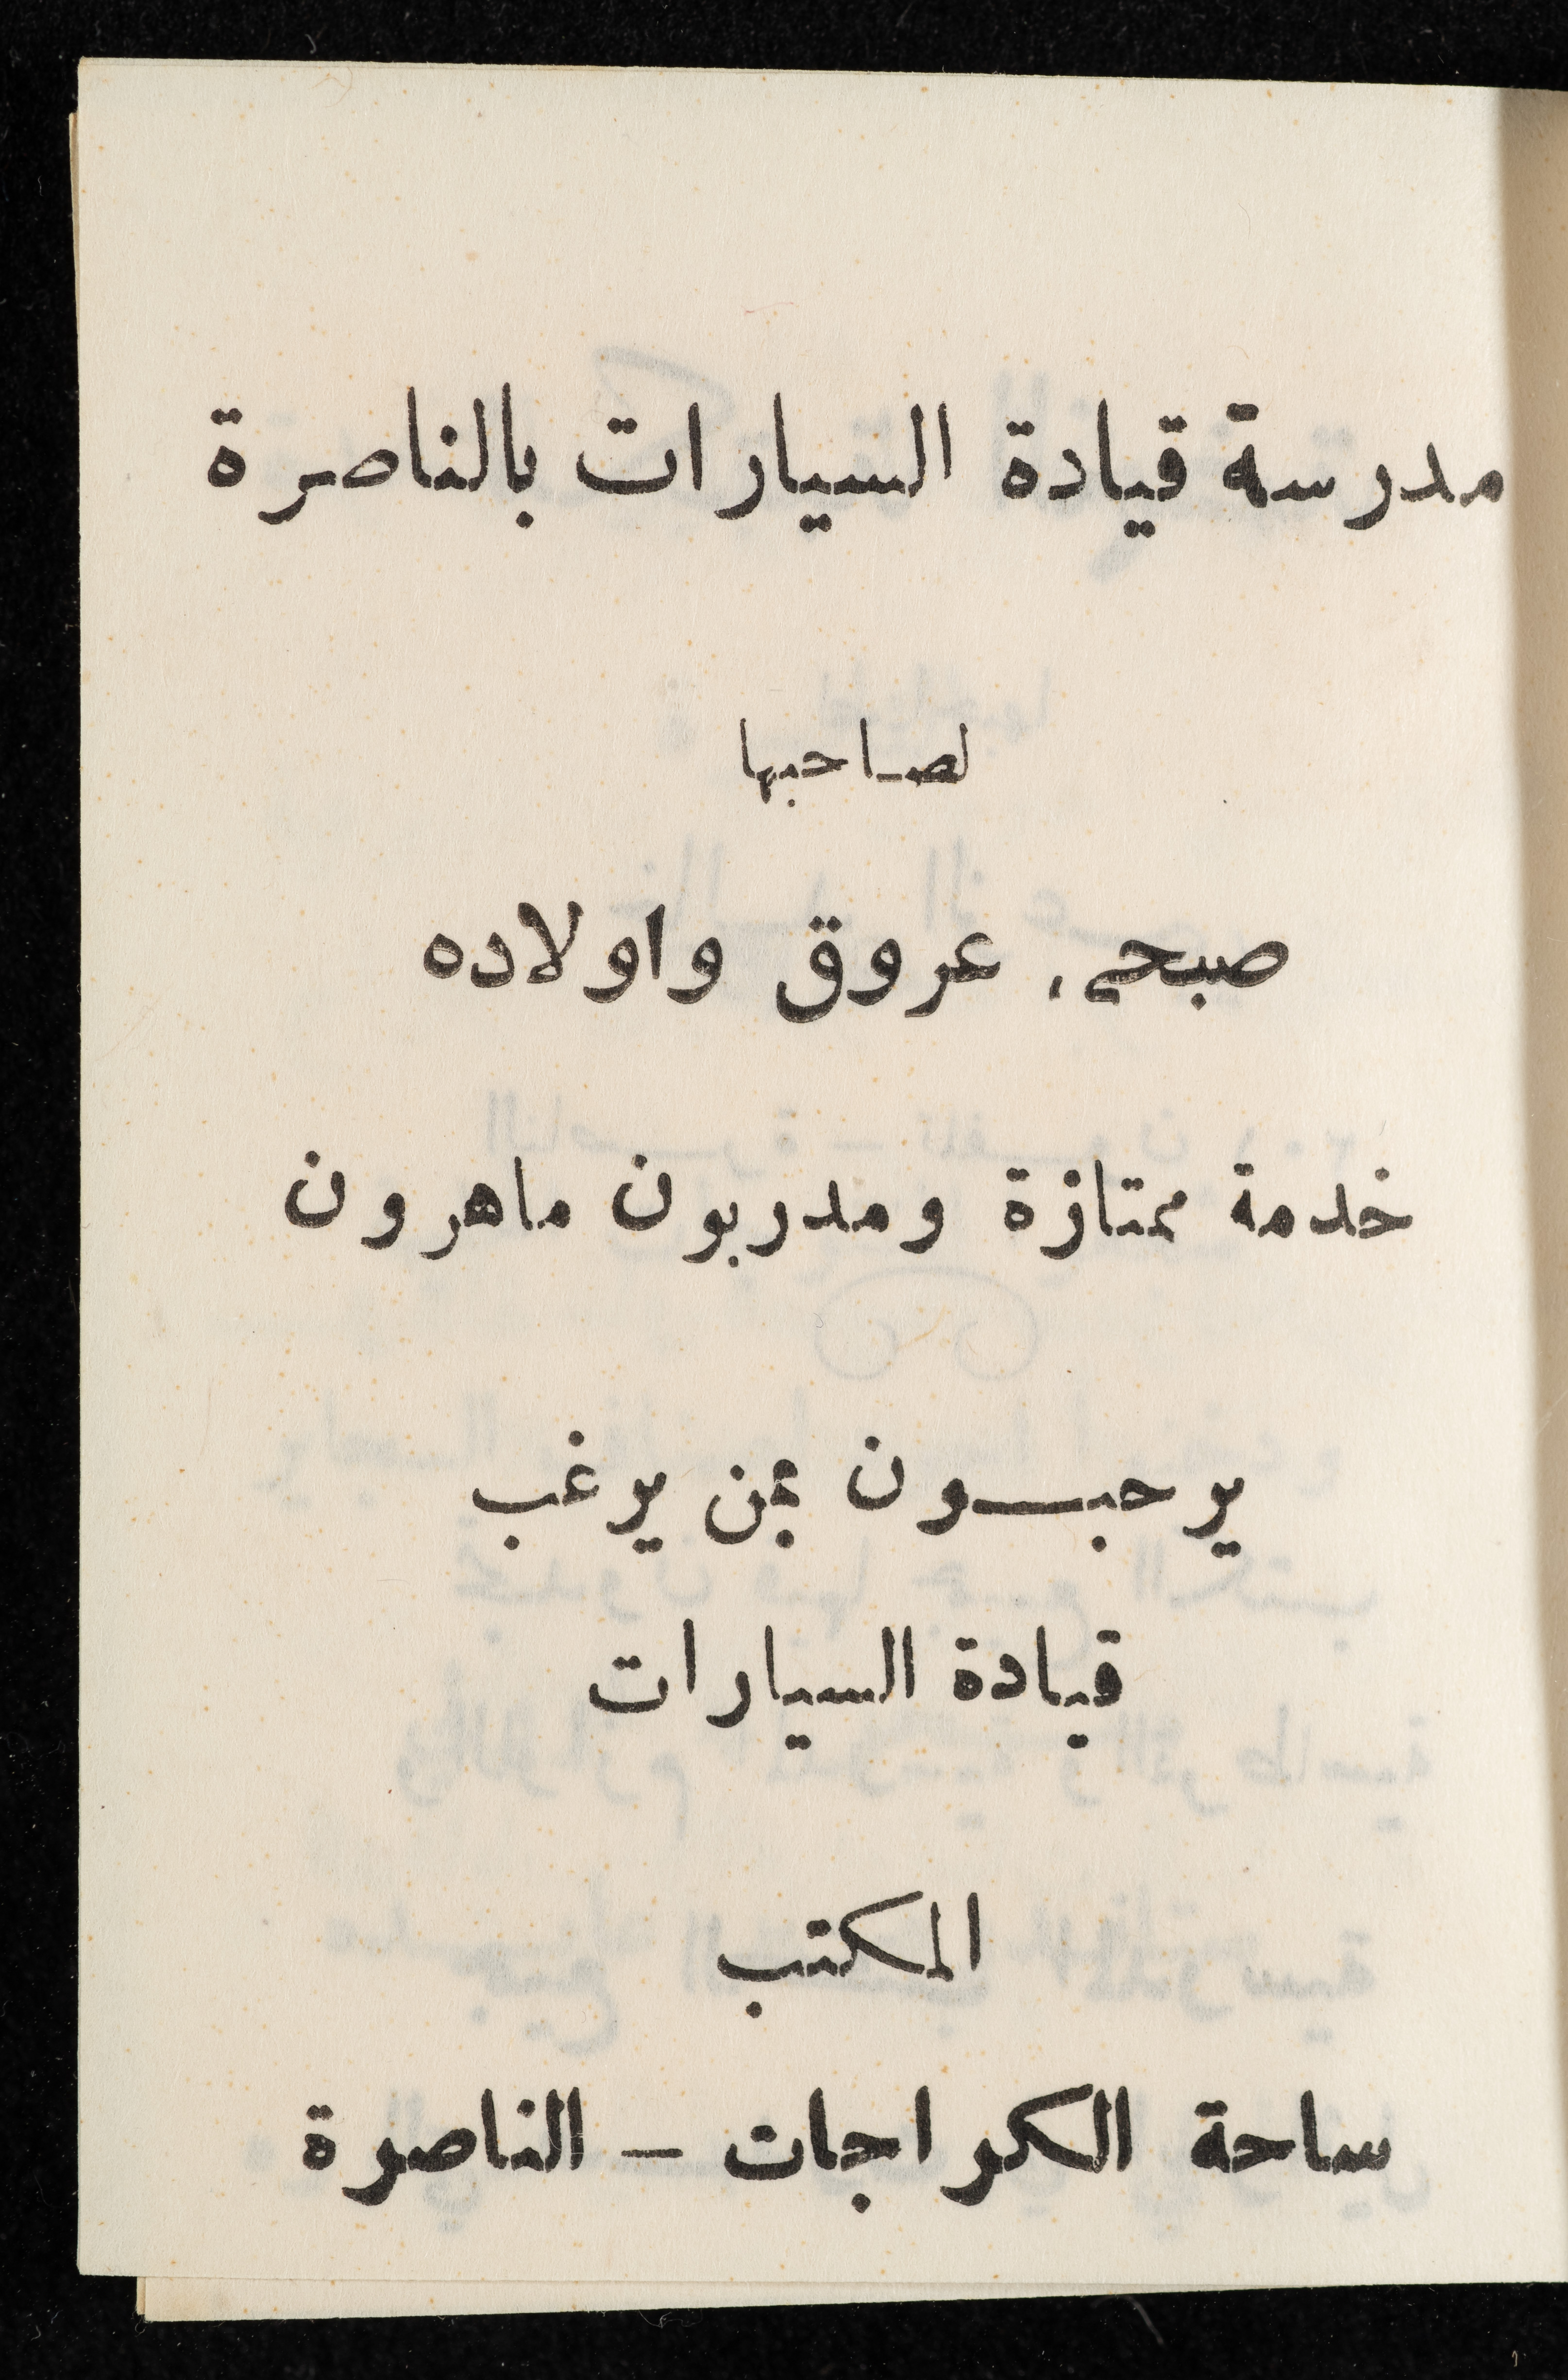 مدرسة قيادة السيارات بالناصرة
لصاحبها
صبحي، عروق واولاده
خدمة ممتازة ومدربون ماهرون
يرحبون بمن يرغب
قيادة السيارات
المكتب
ساحة الكراجات - الناصرة